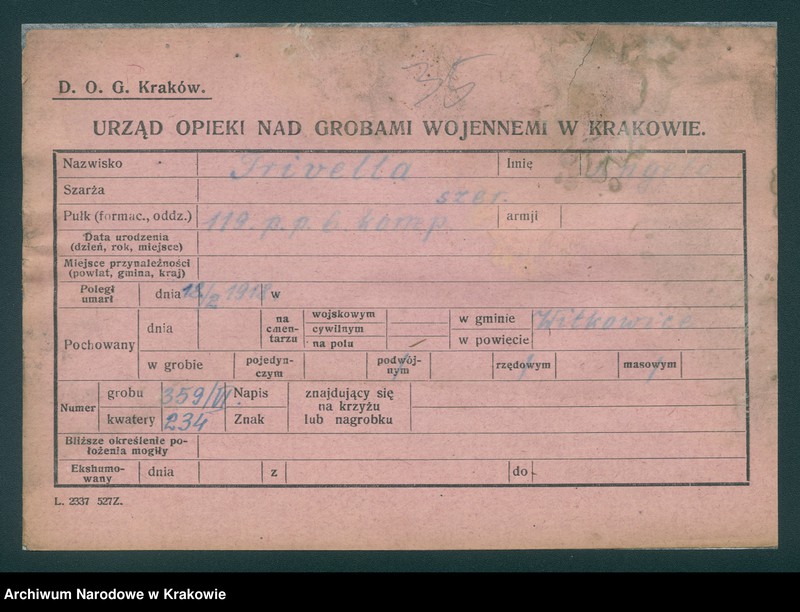 D. O. G. Kraków.
URZĄD OPIEKI NAD GROBAMI WOJENNEMI W KRAKOWIE.
Nazwisko Trivella Imię Angelo
Szarża szer.
Pułk (formac., oddz.) 119. p.p. 6. komp. armji
Data urodzenia
(dzień, rok, miejsce)
Miejsce przynależności
(powiat, gmina, kraj)
Poległ
umarł dnia 18/2 1918 w
Pochowany dnia na cmen-
tarzu wojskowym
cywilnym
na polu w gminie Witkowice
w powiecie
w grobie pojedyn-
czym podwój-
nym rzędowym masowym
Numer grobu 359/VI. Napis znajdujący się
na krzyżu
lub nagrobku
kwatery 234 Znak
Bliższe określenie po-
łożenia mogiły
Ekshumo-
wany dnia z do
L. 2337 527Z.
Archiwum Narodowe w Krakowie